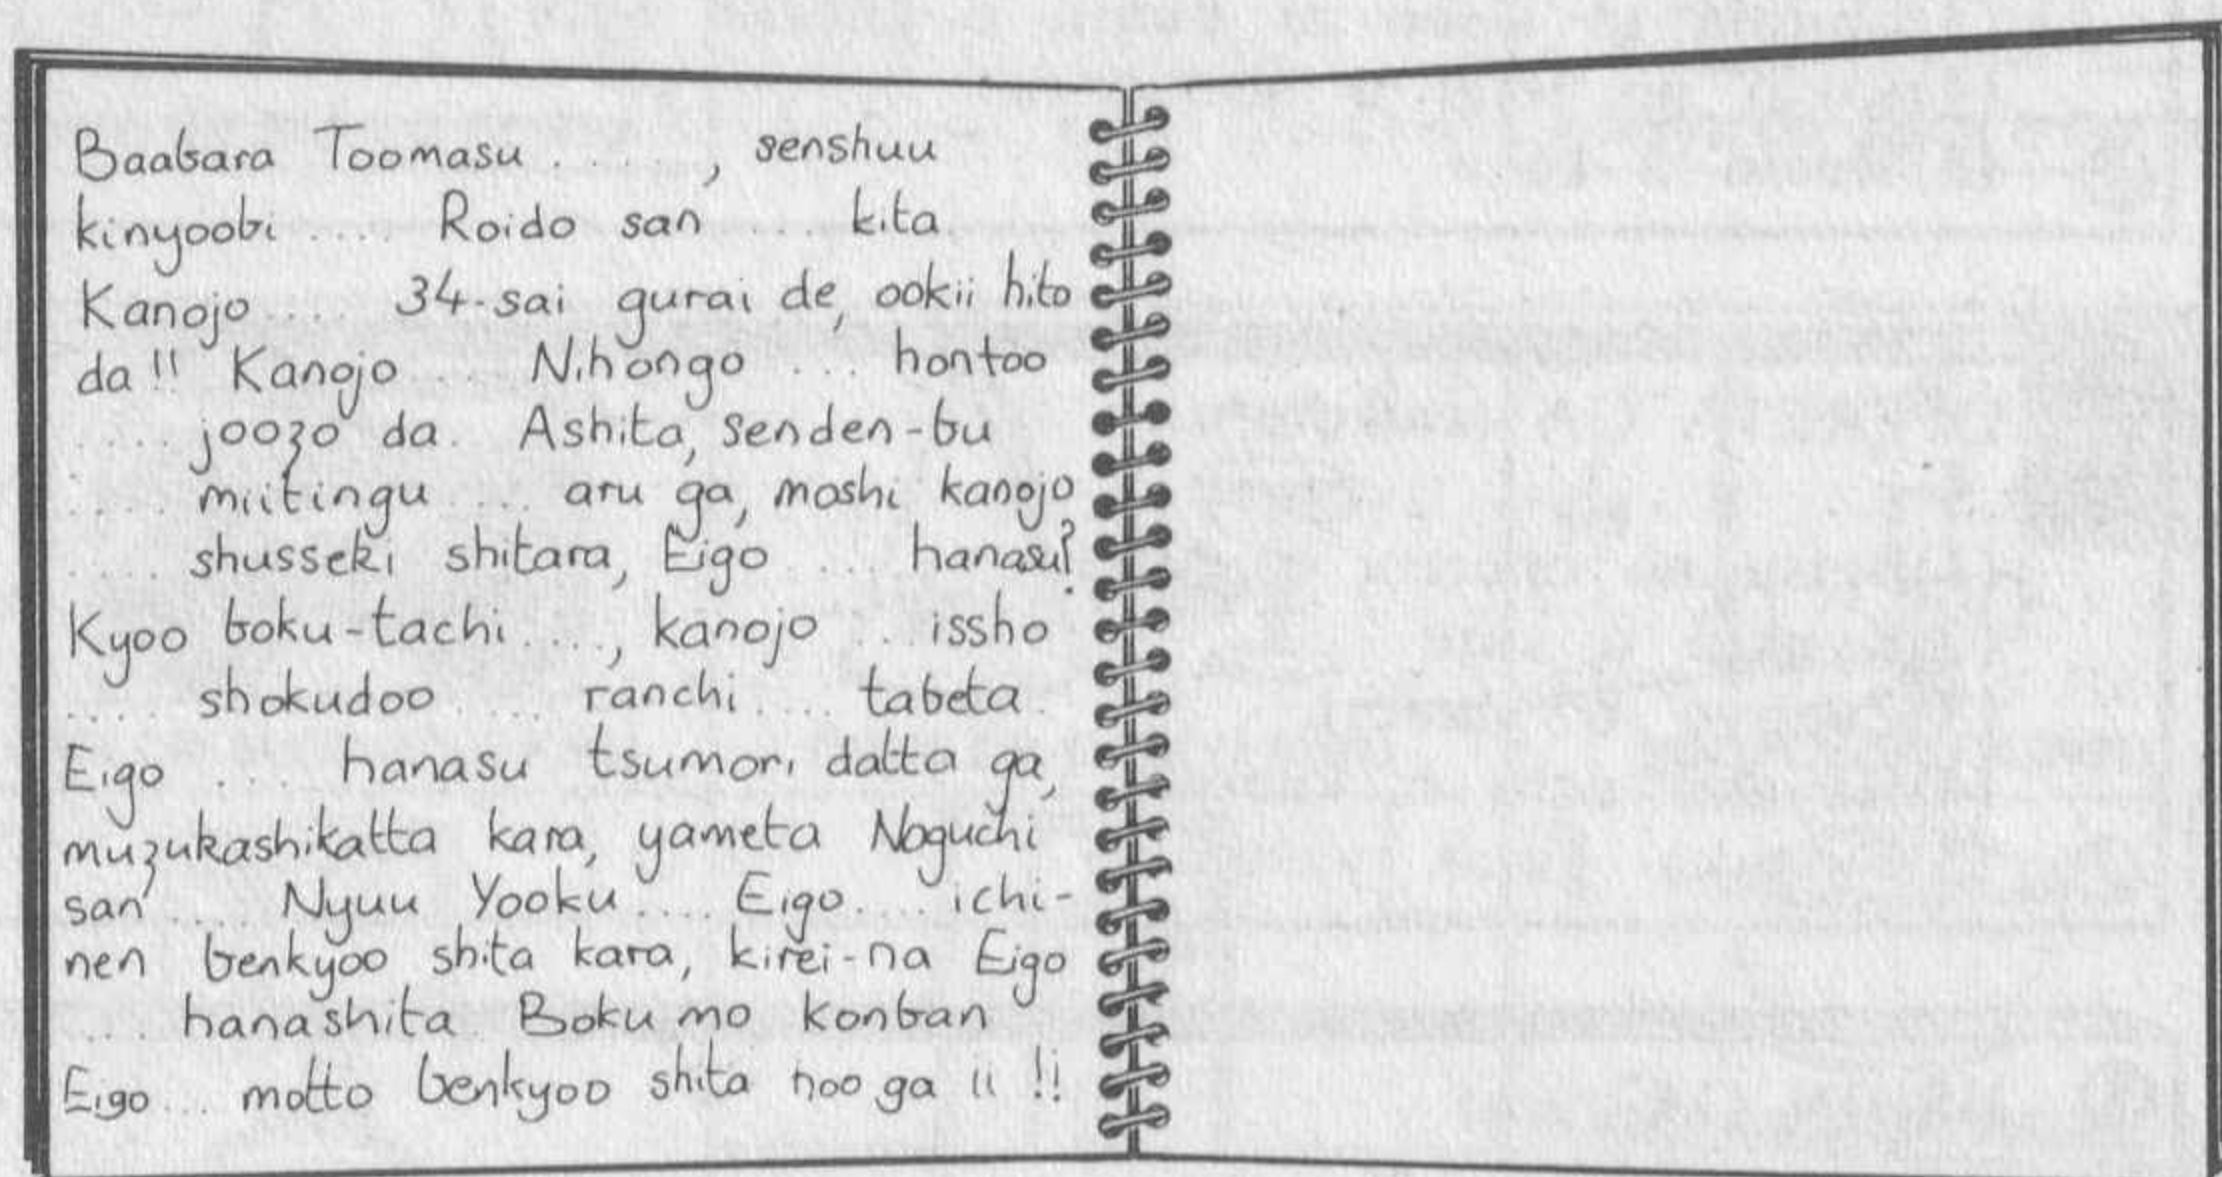 Baabara Toomasu ....., senshuu
kinyoobi .... Roido san .... kita.
Kanojo .... 34-sai gurai de, ookii hito
da!! Kanojo .... Nihongo .... hontoo
.... joozo da. Ashita, senden-bu
.... miitingu .... aru ga, moshi kanojo
.... shusseki shitara, Eigo .... hanasu?
Kyoo boku-tachi ...., kanojo .. issho
.... shokudoo .... ranchi .... tabeta.
Eigo .... hanasu tsumori datta ga,
muzukashikatta kara, yameta Noguchi
san .... Nyuu Yooku .... Eigo .... ichi-
nen benkyoo shita kara, kirei-na Eigo
.... hanashita. Boku mo konban
Eigo ... motto benkyoo shita hoo ga ii!!